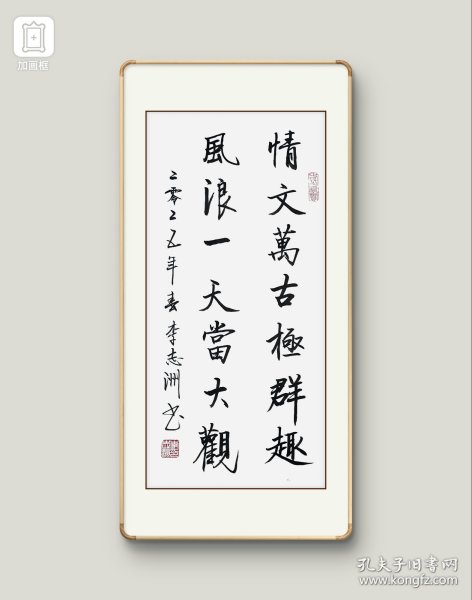 加画框
情文萬古極群趣
風浪一天當大觀
二零二五年春李志洲书
孔夫子旧书网
www.kongfz.com